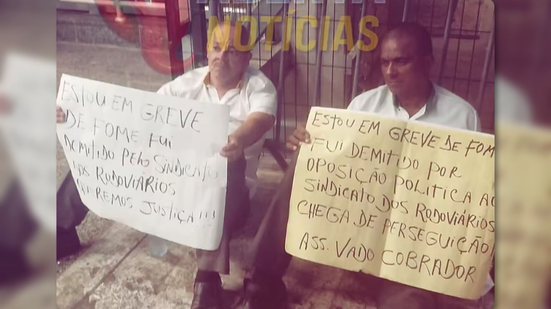 NOTÍCIAS
ESTOU EM GREVE
DE FOME FUI
DEMITIDO PELO SINDICATO
DOS RODOVIÁRIOS
QUEREMOS JUSTIÇA!!!
ESTOU EM GREVE DE FOME
FUI DEMITIDO POR
OPOSIÇÃO POLITICA AO
SINDICATO DOS RODOVIÁRIOS
CHEGA DE PERSEGUIÇÃO
ASS. VADO COBRADOR